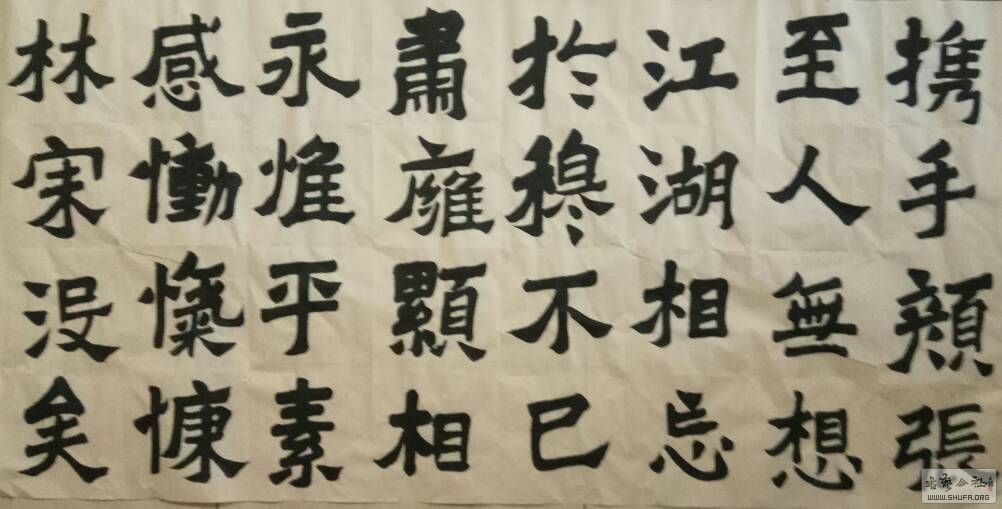 携手顔張
至人無想
江湖相忘
於穆不已
肅雍顯相
永惟平素
感慟愾慷
林宗没矣
書藝公社
WWW.SHUFA.ORG